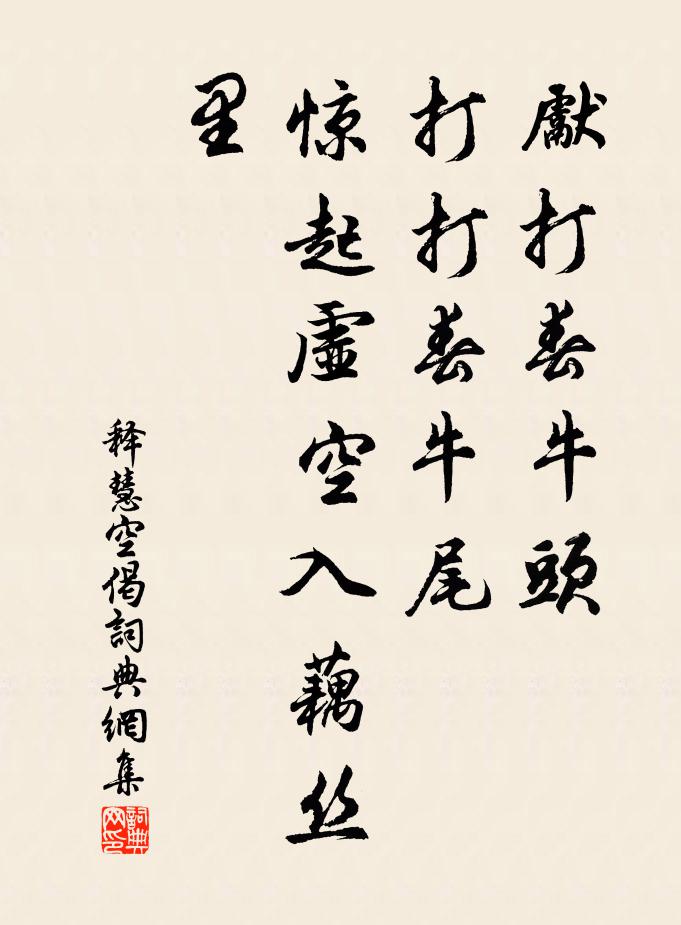 獻打春牛頭
打打春牛尾
惊起虛空入藕丝
里
释慧空偈詞典網集
詞典网印